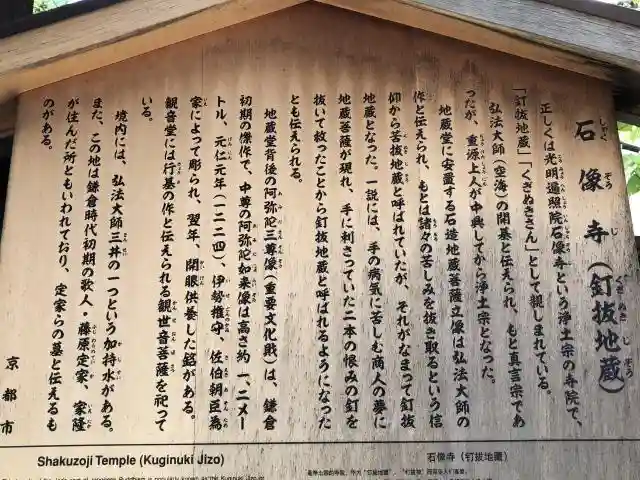 石像寺（釘抜地蔵）
正しくは光明遍照院石像寺という浄土宗の寺院で、
「釘抜地蔵」「くぎぬきさん」として親しまれている。
弘法大師（空海）の開基と伝えられ、もと真言宗であ
ったが、重源上人が中興してから浄土宗となった。
地蔵堂に安置する石造地蔵菩薩立像は弘法大師の
作と伝えられ、もとは諸々の苦しみを抜き取るという信
仰から苦抜地蔵と呼ばれていたが、それがなまって釘抜
地蔵となった。一説には、手の病気に苦しむ商人の夢に
地蔵菩薩が現れ、手に刺さっていた二本の恨みの釘を
抜いて救ったことから釘抜地蔵と呼ばれるようになった
とも伝えられる。
地蔵堂背後の阿弥陀三尊像（重要文化財）は、鎌倉
初期の傑作で、中尊の阿弥陀如来像は高さ約一、二メー
トル、元仁元年（一二二四）、伊勢権守、佐伯朝臣為
家によって彫られ、翌年、開眼供養した銘がある。
観音堂には行基の作と伝えられる観世音菩薩を祀って
いる。
境内には、弘法大師三井の一つという加持水がある。
また、この地は鎌倉時代初期の歌人・藤原定家、家隆
が住んだ所ともいわれており、定家らの墓と伝えるも
のがある。
京都市
Shakuzoji Temple (Kuginuki Jizo)
石像寺（钉拔地藏）